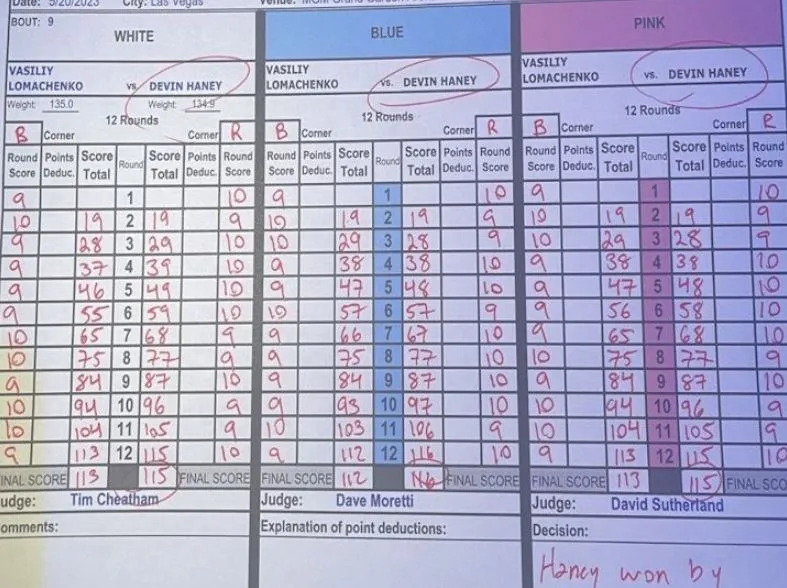 Date: 5/20/2023 City: Las Vegas Venue: MGM Grand Garden
BOUT: 9
WHITE BLUE PINK
VASILIY VASILIY VASILIY
LOMACHENKO vs. DEVIN HANEY LOMACHENKO vs. DEVIN HANEY LOMACHENKO vs. DEVIN HANEY
Weight: 135.0 Weight: 134.9
12 Rounds 12 Rounds 12 Rounds
B Corner Corner R B Corner Corner R B Corner Corner R
Round Points Score Round Score Points Round Round Points Score Round Score Points Round Round Points Score Round Score Points Round
Score Deduc. Total Total Deduc. Score Score Deduc. Total Total Deduc. Score Score Deduc. Total Total Deduc. Score
9 1 10 9 1 10 9 1 10
10 19 2 19 9 10 19 2 19 9 10 19 2 19 9
9 28 3 29 10 10 29 3 28 9 10 29 3 28 9
9 37 4 39 10 9 38 4 38 10 9 38 4 38 10
9 46 5 49 10 9 47 5 48 10 9 47 5 48 10
9 55 6 59 10 10 57 6 57 9 9 56 6 58 10
10 65 7 68 9 9 66 7 67 10 9 65 7 68 10
10 75 8 77 9 9 75 8 77 10 10 75 8 77 9
9 84 9 87 10 9 84 9 87 10 9 84 9 87 10
10 94 10 96 9 9 93 10 97 10 10 94 10 96 9
10 104 11 105 9 10 103 11 106 9 10 104 11 105 9
9 113 12 115 10 9 112 12 116 10 9 113 12 115 10
INAL SCORE 113 115 FINAL SCORE FINAL SCORE 112 116 FINAL SCORE FINAL SCORE 113 115 FINAL SCO
udge: Tim Cheatham Judge: Dave Moretti Judge: David Sutherland
omments: Explanation of point deductions: Decision:
Haney won by